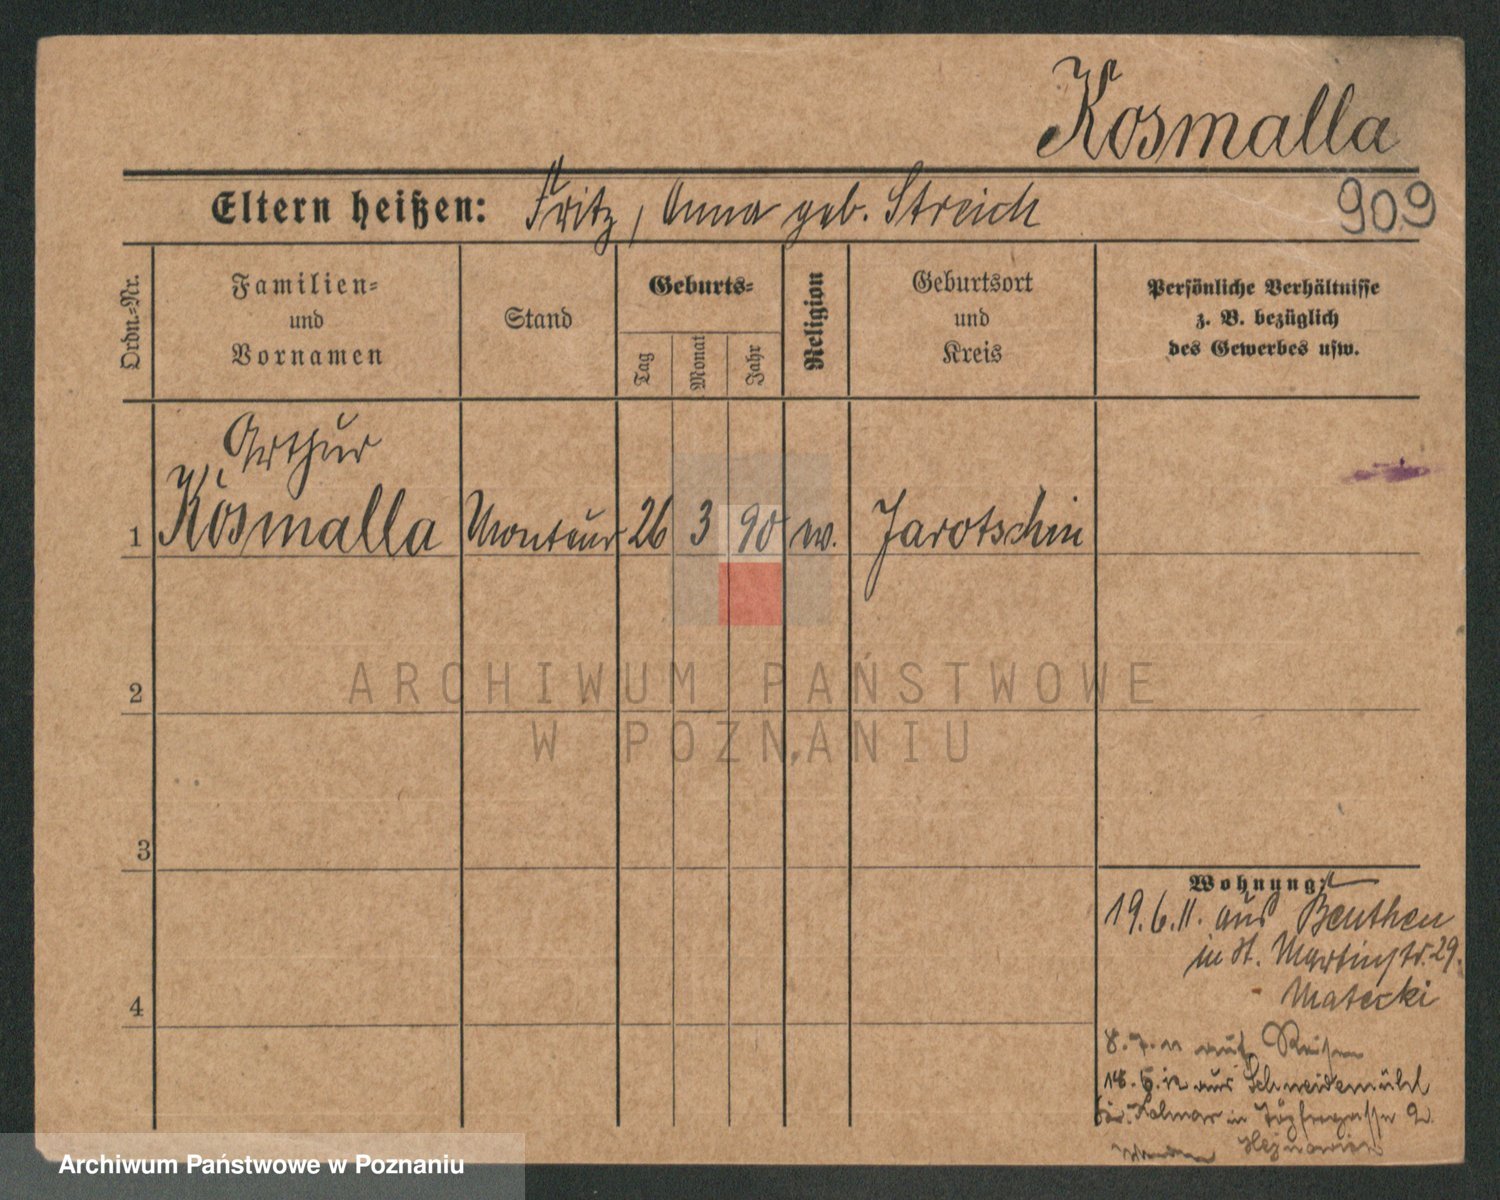 Kosmalla
Eltern heißen: Fritz, Anna geb. Streich
909
Ordn.-Nr.
Familien=
und
Vornamen
Stand
Geburts=
Tag
Monat
Jahr
Religion
Geburtsort
und
Kreis
Persönliche Verhältnisse
z. B. bezüglich
des Gewerbes usw.
Arthur
1 Kosmalla Monteur 26 3 90 ev. Jarotschin
2
3
4
Wohnung:
19.6.11. aus Beuthen
in St. Martinstr. 29.
Matecki
8.7.11 auf Reisen
18.5.12 aus Schneidemühl
Kolmar in Töpfergasse 2.
ARCHIWUM PAŃSTWOWE
W POZNANIU
Archiwum Państwowe w Poznaniu